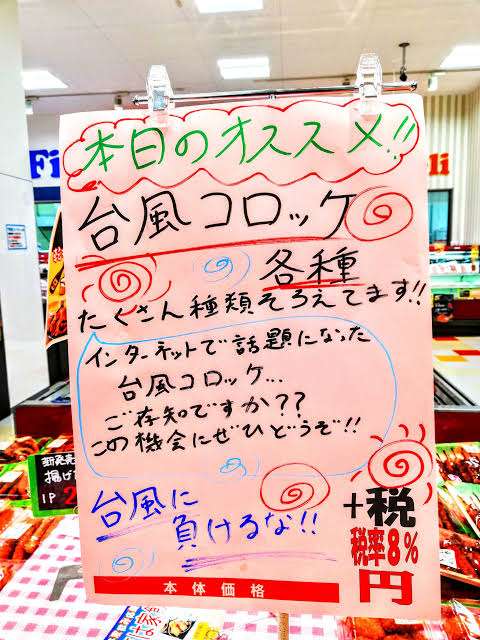 本日のオススメ!!
台風コロッケ
各種
たくさん種類そろえてます!!
インターネットで話題になった
台風コロッケ...
ご存知ですか??
この機会にぜひどうぞ!!
台風に
負けるな!!
+税
税率8%
円
本体価格
Fi
li
揚げ
1P 2